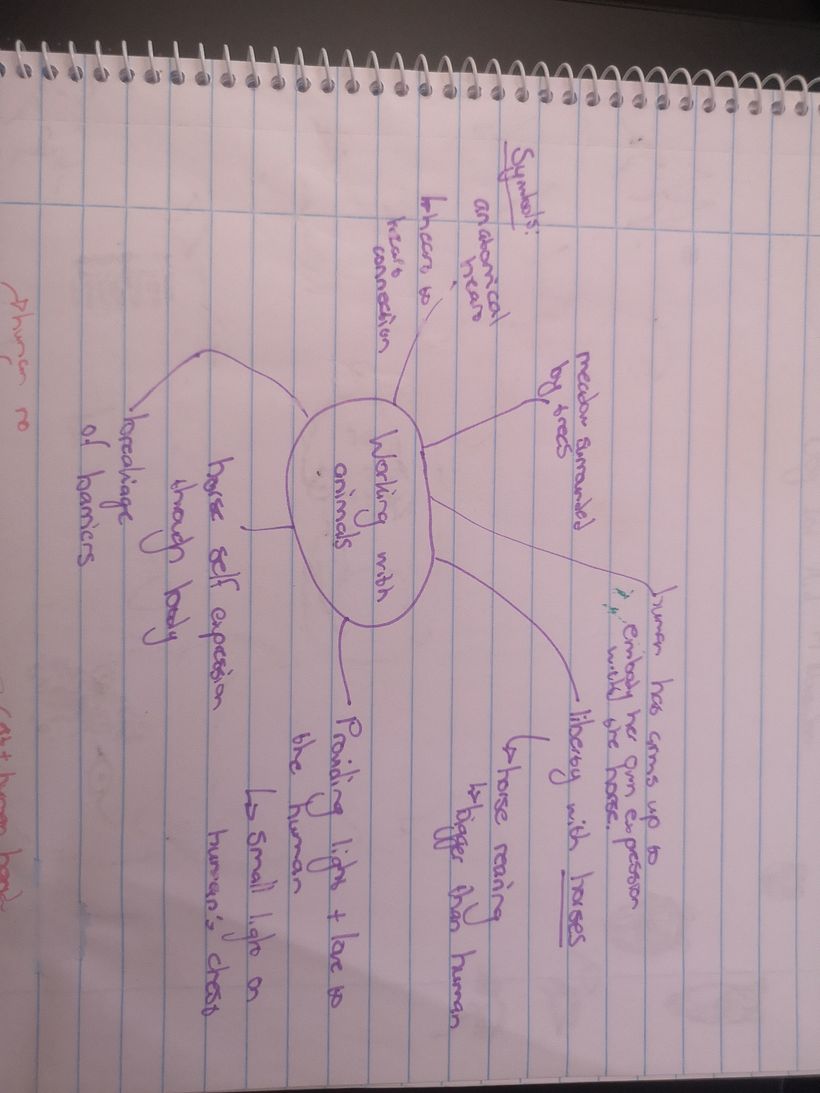 Symbols:
anatomical
heart
↳ heart to
heart
connection
meadow surrounded
by trees
human has arms up to
embody her own expression
with the horse.
liberty with horses
↳ horse rearing
↳ bigger than human
Working with
animals
Providing light + love to
the human
↳ small light on
human's chest
horse self expression
through body
breakage
of barriers
→ human no
human